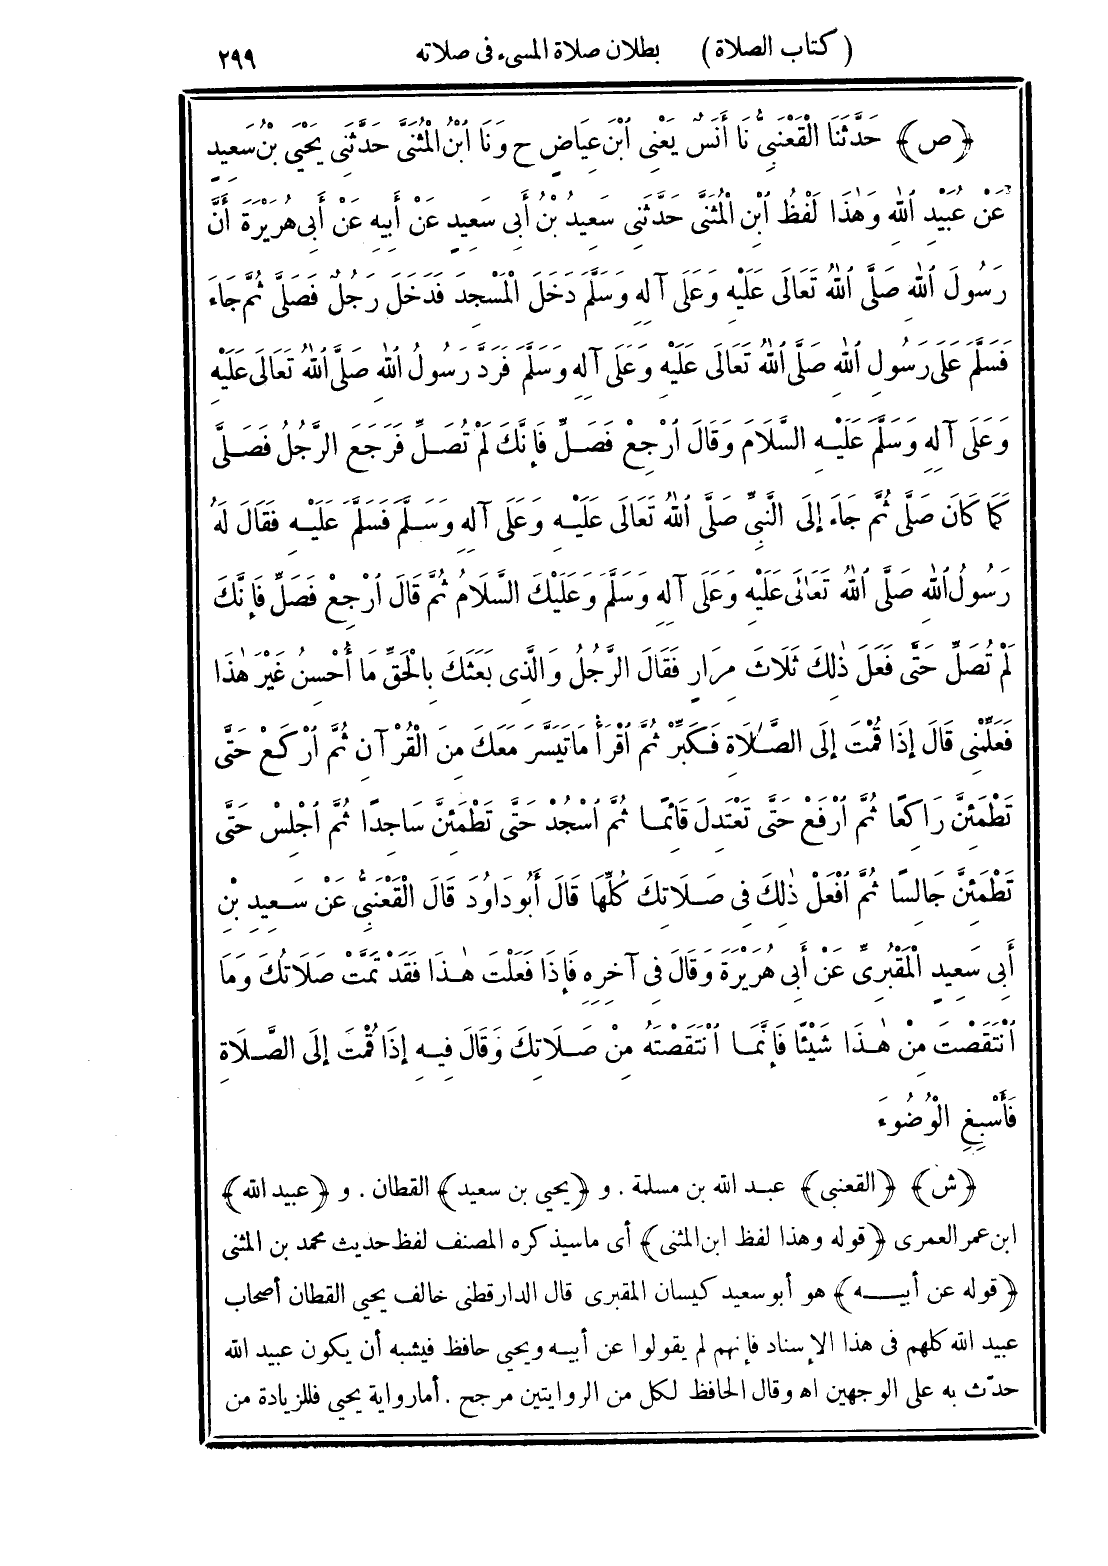 ( كتاب الصلاة ) بطلان صلاة المسىء فى صلاته ٢٩٩
﴿ص﴾ حَدَّثَنَا الْقَعْنَبِىُّ نَا أَنَسٌ يَعْنِى ٱبْنَ عِيَاضٍ ح وَنَا ٱبْنُ الْمُثَنَّى حَدَّثَنِى يَحْيَى بْنُ سَعِيدٍ
عَنْ عُبَيْدِ ٱللهِ وَهٰذَا لَفْظُ ٱبْنِ الْمُثَنَّى حَدَّثَنِى سَعِيدُ بْنُ أَبِى سَعِيدٍ عَنْ أَبِيهِ عَنْ أَبِى هُرَيْرَةَ أَنَّ
رَسُولَ ٱللهِ صَلَّى ٱللهُ تَعَالَى عَلَيْهِ وَعَلَى آلِهِ وَسَلَّمَ دَخَلَ الْمَسْجِدَ فَدَخَلَ رَجُلٌ فَصَلَّى ثُمَّ جَاءَ
فَسَلَّمَ عَلَى رَسُولِ ٱللهِ صَلَّى ٱللهُ تَعَالَى عَلَيْهِ وَعَلَى آلِهِ وَسَلَّمَ فَرَدَّ رَسُولُ ٱللهِ صَلَّى ٱللهُ تَعَالَى عَلَيْهِ
وَعَلَى آلِهِ وَسَلَّمَ عَلَيْهِ السَّلَامَ وَقَالَ ٱرْجِعْ فَصَلِّ فَإِنَّكَ لَمْ تُصَلِّ فَرَجَعَ الرَّجُلُ فَصَلَّى
كَمَا كَانَ صَلَّى ثُمَّ جَاءَ إِلَى النَّبِىِّ صَلَّى ٱللهُ تَعَالَى عَلَيْهِ وَعَلَى آلِهِ وَسَلَّمَ فَسَلَّمَ عَلَيْهِ فَقَالَ لَهُ
رَسُولُ ٱللهِ صَلَّى ٱللهُ تَعَالَى عَلَيْهِ وَعَلَى آلِهِ وَسَلَّمَ وَعَلَيْكَ السَّلَامُ ثُمَّ قَالَ ٱرْجِعْ فَصَلِّ فَإِنَّكَ
لَمْ تُصَلِّ حَتَّى فَعَلَ ذٰلِكَ ثَلَاثَ مِرَارٍ فَقَالَ الرَّجُلُ وَالَّذِى بَعَثَكَ بِالْحَقِّ مَا أُحْسِنُ غَيْرَ هٰذَا
فَعَلِّمْنِى قَالَ إِذَا قُمْتَ إِلَى الصَّلَاةِ فَكَبِّرْ ثُمَّ ٱقْرَأْ مَا تَيَسَّرَ مَعَكَ مِنَ الْقُرْآنِ ثُمَّ ٱرْكَعْ حَتَّى
تَطْمَئِنَّ رَاكِعًا ثُمَّ ٱرْفَعْ حَتَّى تَعْتَدِلَ قَائِمًا ثُمَّ ٱسْجُدْ حَتَّى تَطْمَئِنَّ سَاجِدًا ثُمَّ ٱجْلِسْ حَتَّى
تَطْمَئِنَّ جَالِسًا ثُمَّ ٱفْعَلْ ذٰلِكَ فِى صَلَاتِكَ كُلِّهَا قَالَ أَبُو دَاوُدَ قَالَ الْقَعْنَبِىُّ عَنْ سَعِيدِ بْنِ
أَبِى سَعِيدٍ الْمَقْبُرِىِّ عَنْ أَبِى هُرَيْرَةَ وَقَالَ فِى آخِرِهِ فَإِذَا فَعَلْتَ هٰذَا فَقَدْ تَمَّتْ صَلَاتُكَ وَمَا
ٱنْتَقَصْتَ مِنْ هٰذَا شَيْئًا فَإِنَّمَا ٱنْتَقَصْتَهُ مِنْ صَلَاتِكَ وَقَالَ فِيهِ إِذَا قُمْتَ إِلَى الصَّلَاةِ
فَأَسْبِغِ الْوُضُوءَ
﴿ش﴾ ﴿القعنبى﴾ عبد الله بن مسلمة . و ﴿يحيى بن سعيد﴾ القطان . و ﴿عبيد الله﴾
ابن عمر العمرى ﴿قوله وهذا لفظ ابن المثنى﴾ أى ماسيذكره المصنف لفظ حديث محمد بن المثنى
﴿قوله عن أبيه﴾ هو أبو سعيد كيسان المقبرى قال الدارقطنى خالف يحيى القطان أصحاب
عبيد الله كلهم فى هذا الإسناد فإنهم لم يقولوا عن أبيه ويحيى حافظ فيشبه أن يكون عبيد الله
حدّث به على الوجهين اه وقال الحافظ لكل من الروايتين مرجح . أما رواية يحيى فللزيادة من